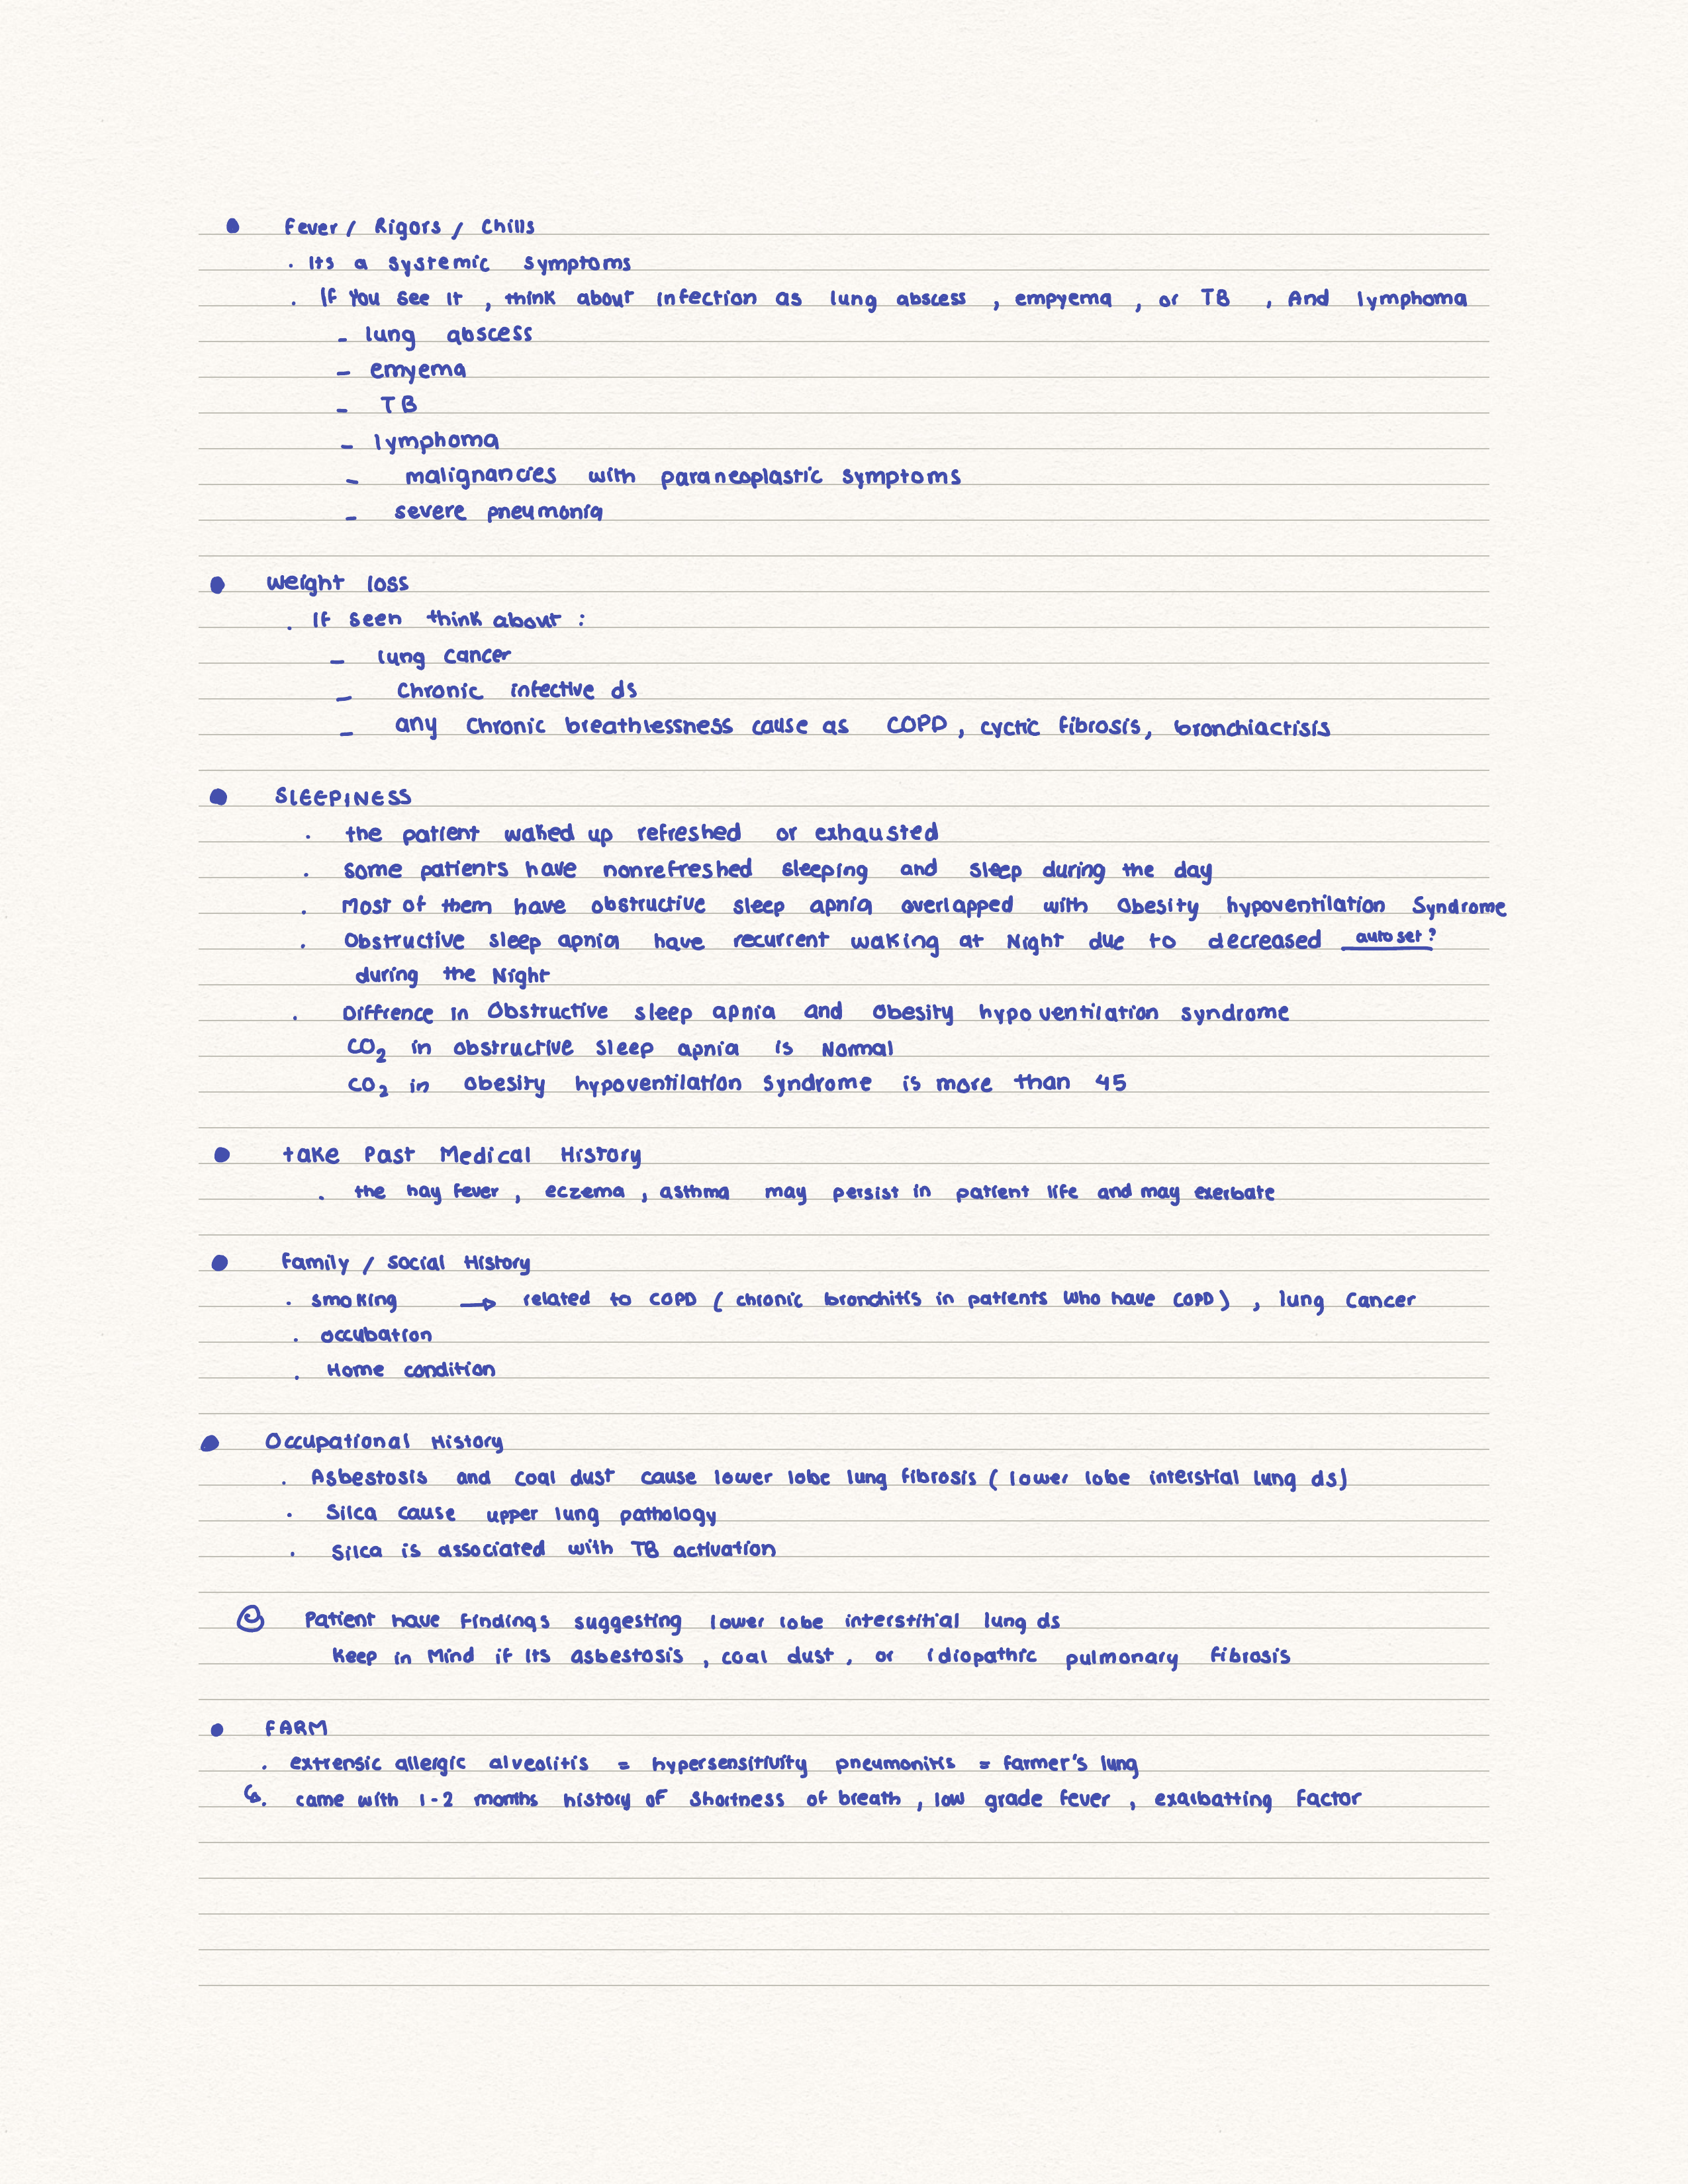 ● Fever / Rigors / Chills
. Its a systemic symptoms
. If You see it , think about infection as lung abscess , empyema , or TB , And lymphoma
- lung abscess
- emyema
- TB
- lymphoma
- malignancies with paraneoplastic symptoms
- severe pneumonia
● weight loss
. If seen think about :
- lung cancer
- Chronic infective ds
- any Chronic breathlessness cause as COPD , cyctic fibrosis, bronchiactisis
● SLEEPINESS
. the patient waked up refreshed or exhausted
. some patients have nonrefreshed sleeping and sleep during the day
. Most of them have obstructive sleep apnia overlapped with Obesity hypoventilation Syndrome
. Obstructive sleep apnia have recurrent waking at Night due to decreased auto set ?
during the Night
. Diffrence in Obstructive sleep apnia and Obesity hypoventilation syndrome
CO₂ in obstructive sleep apnia is Normal
CO₂ in obesity hypoventilation syndrome is more than 45
● take Past Medical History
. the hay fever , eczema , asthma may persist in patient life and may exerbate
● family / social History
. smoking → related to COPD ( chronic bronchitis in patients who have COPD ) , lung Cancer
. occubation
. Home condition
● Occupational History
. Asbestosis and coal dust cause lower lobe lung fibrosis ( lower lobe interstial lung ds )
. Silca cause upper lung pathology
. Silca is associated with TB activation
Patient have findings suggesting lower lobe interstitial lung ds
Keep in Mind if Its asbestosis , coal dust , or idiopathic pulmonary fibrosis
● FARM
. extrensic allergic alveolitis = hypersensitivity pneumonitis = farmer's lung
. came with 1-2 months history of shortness of breath , low grade fever , exalbatting factor